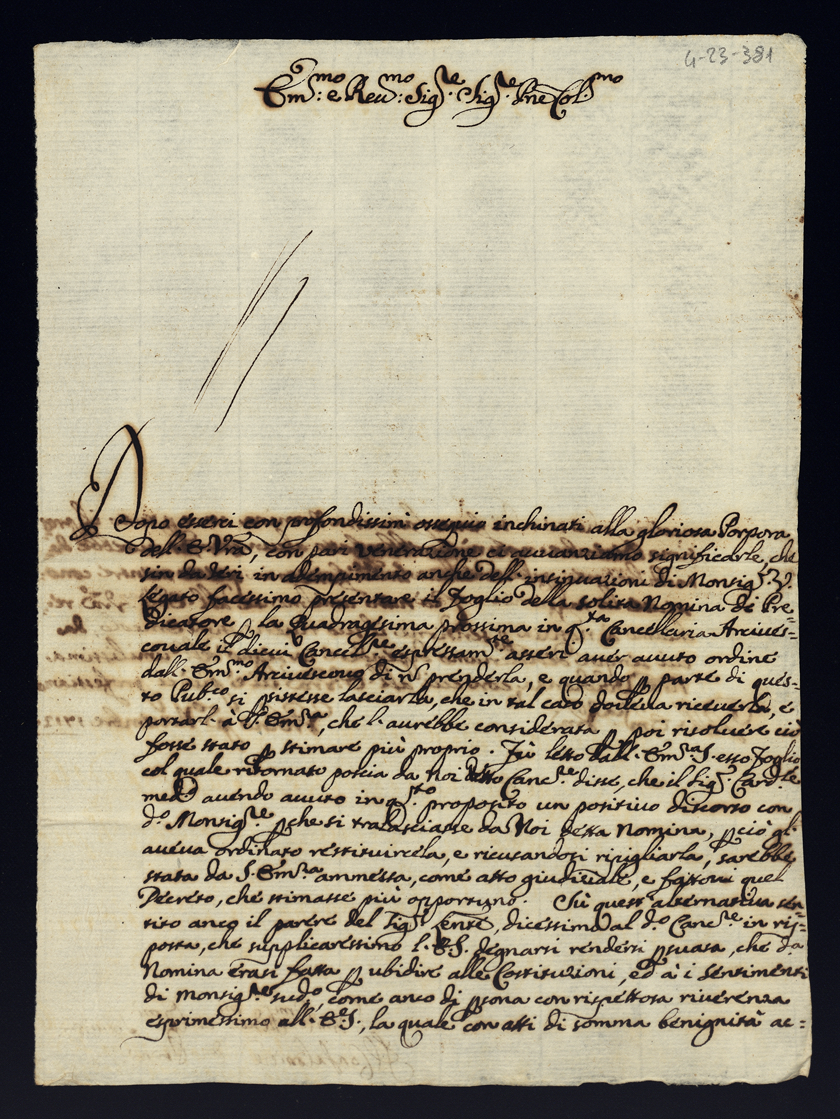 4-23-381
Em:mo e Reu:mo Sig:re Sig:re Pne Col:mo
Dopo esserci con profondissimi ossequio inchinati alla gloriosa Porpora
dell'E. Vra, con pari venerazione ci auuanziamo significarle, che
sin da ieri in adempimento anche dell'insinuazioni di Monsig.r V.
Legato facessimo presentare il Foglio della solita Nomina di Pre=
dicatore p la Quadragesima prossima in q.ta Cancellaria Arciues=
couale il di cui Cancell.re espressam.te asserì auer auuto ordine
dall'Em.mo Arciuescouo di nō prenderla, e quando p parte di ques=
to Pub.co si uolesse lasciarla, che in tal caso doueua riceuerla, e
portarl' à S. Em.a, che l'aurebbe considerata p poi risoluere ciò
fosse stato p stimare più proprio. Fù letto dall'Em.a S. esso Foglio
col quale ritornato poscia da Noi detto Canc.re disse, che il Sig.r Card.le
med.o auendo auuto in q.sto proposito un positiuo discorso con
d.o Monsig.re, pche si tralasciasse da Noi detta Nomina, pciò gl'
aueua ordinato restituircela, e ricusandosi ripigliarla, sarebbe
stata da S. Em.a ammessa, come atto giudiciale, e fattoui quel
Decreto, che stimasse più opportuno. Sù quest'alternatiua sen=
tito anco il parere del Sig.r Conte, dicessimo al d.o Canc.re in ris=
posta, che supplicaressimo l'E.S. degnarsi rendersi psuasa, che d.a
Nomina erasi fatta p ubidire alle Costituzioni, ed à i sentimenti
di Monsig.re sud.o come anco di psona con rispettosa riuerenza
esprimessimo all'E.S., la quale con atti di somma benignità ac=